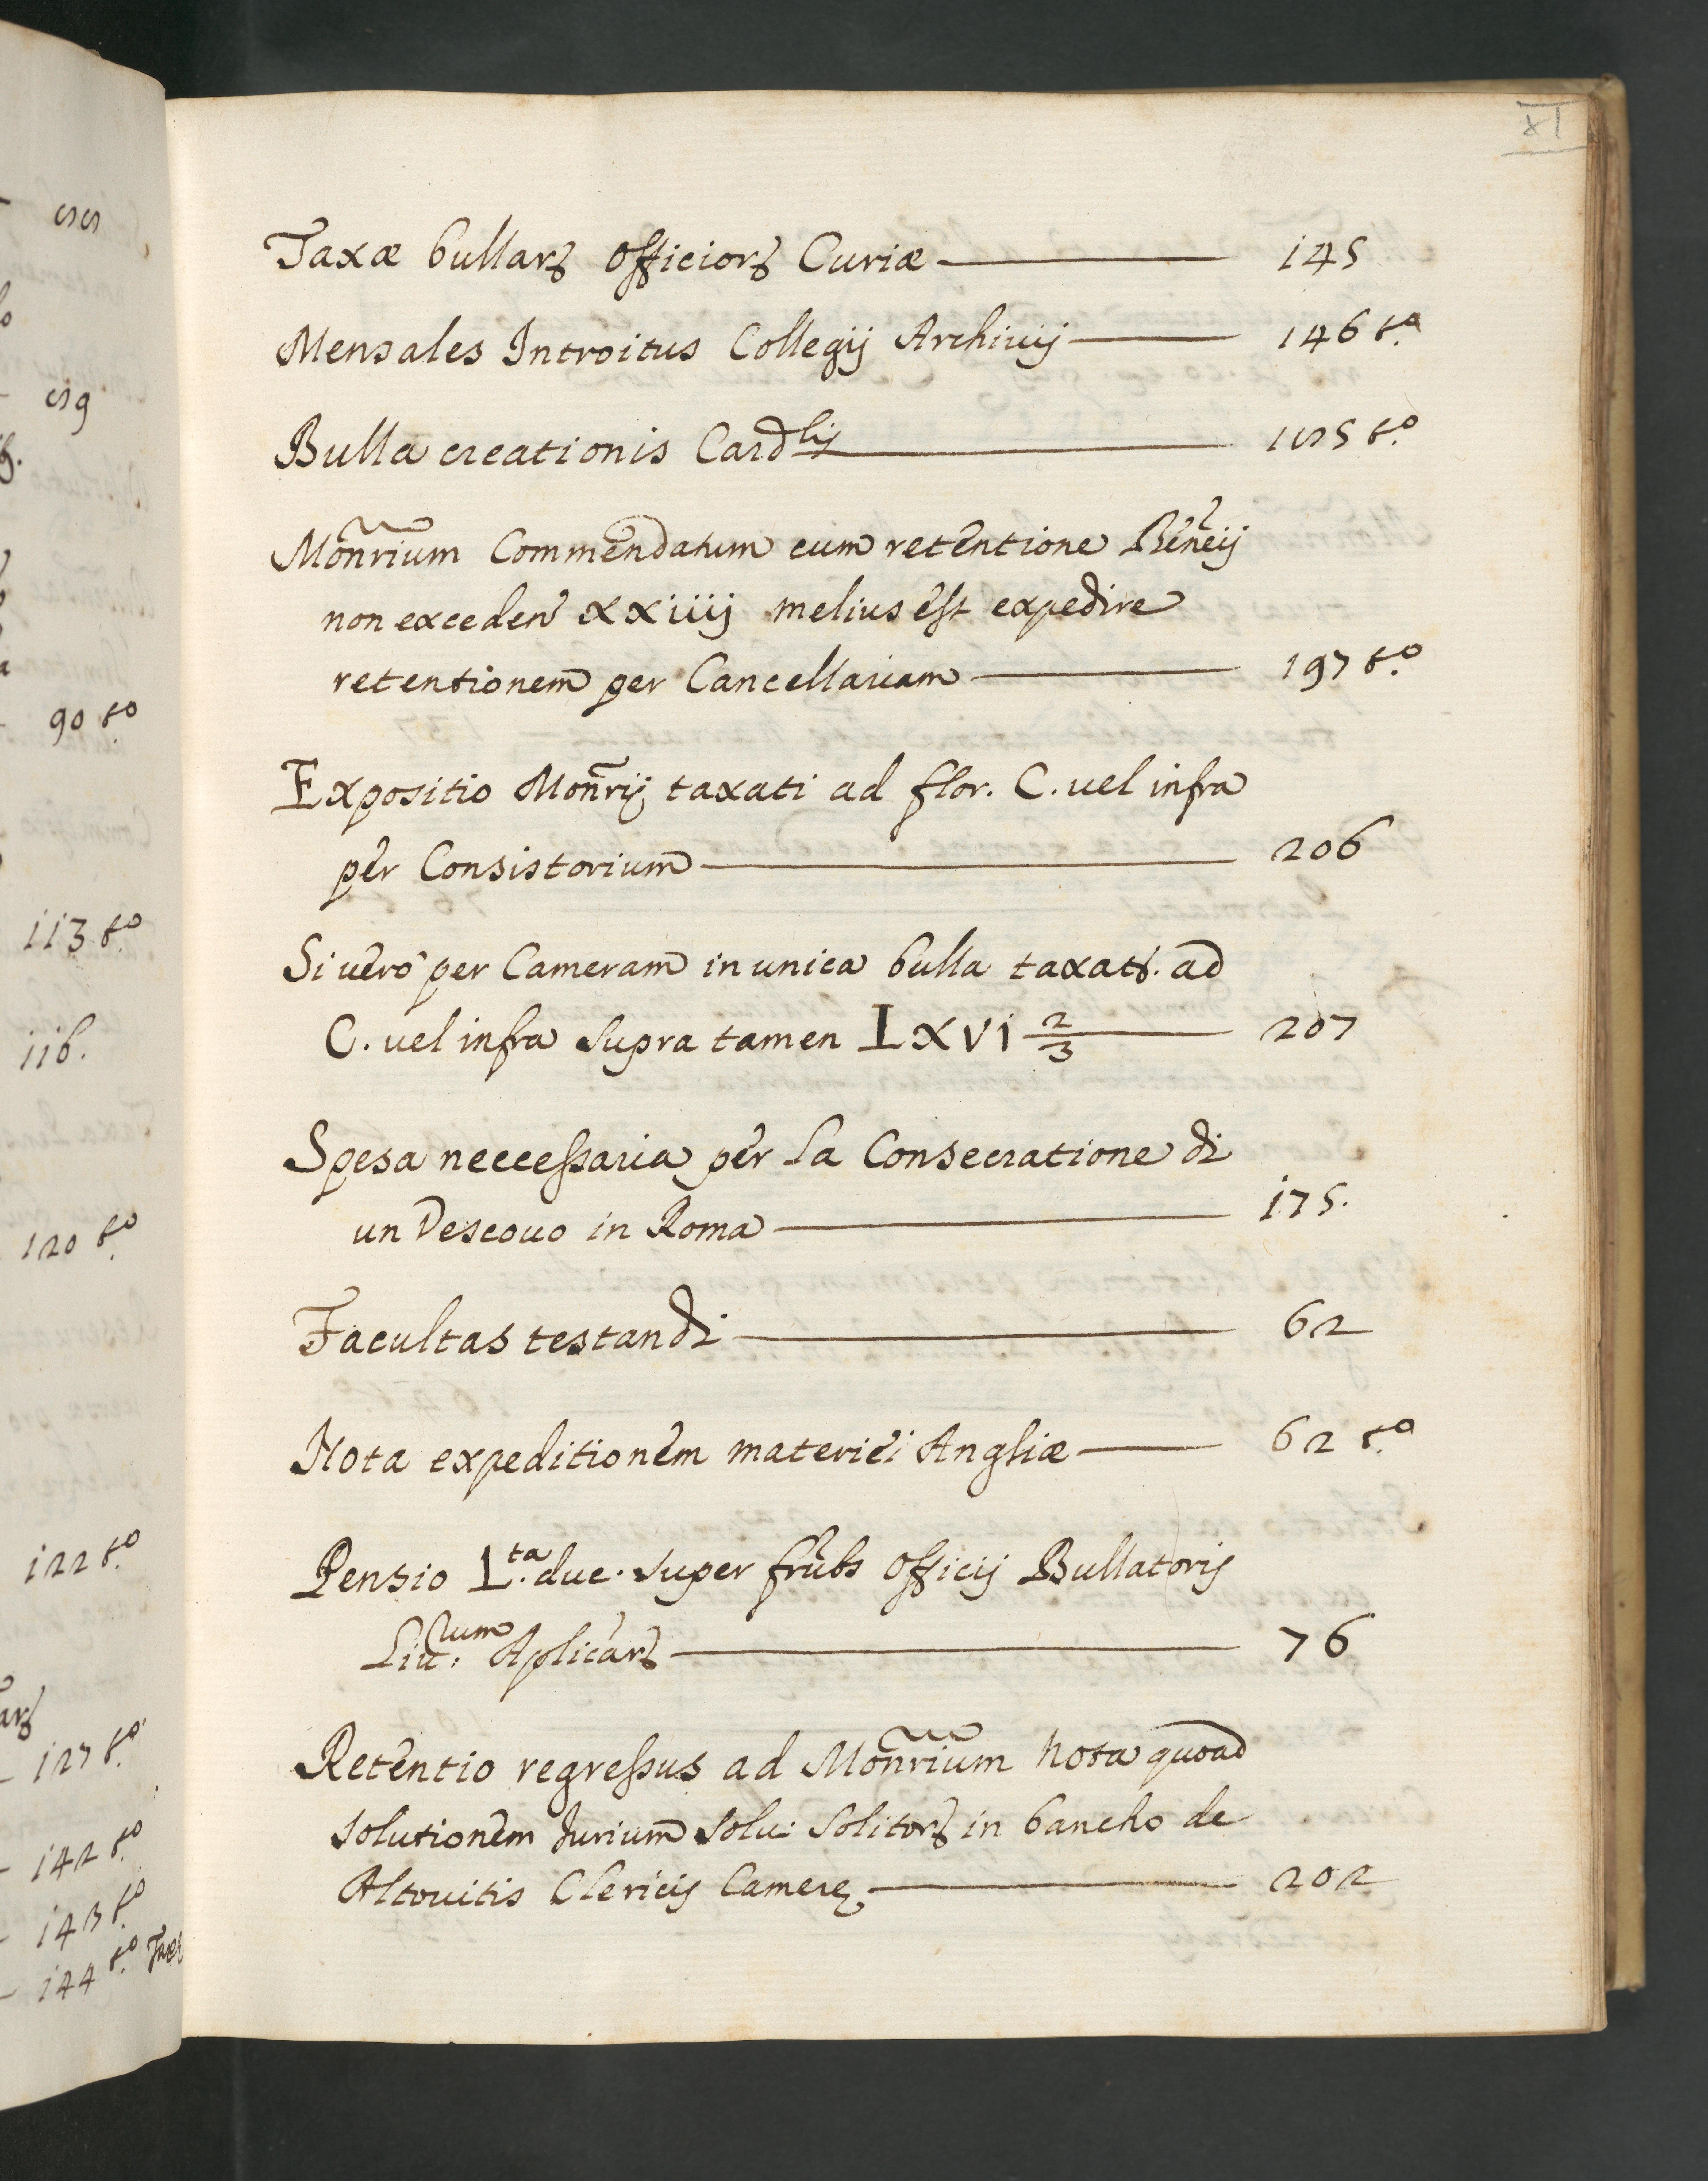 XI
Taxæ bullarꝝ officiorꝝ Curiæ — 145
Mensales Introitus Collegij Archiuij — 146 t.o
Bulla creationis Card.lis — 185 t.o
Mon̄rium Commendatum cum retentione Ben̄eij
non exceden̄ xxiiij melius est expedire
retentionem per Cancellariam — 197 t.o
Expositio Mon̄rij taxati ad flor. C. uel infra
per Consistorium — 206
Si uero per Cameram in unica bulla taxati. ad
C. uel infra supra tamen LXVI 2/3 — 207
Spesa neccessaria per la Consecratione di
un Vescouo in Roma — 175.
Facultas testandi — 62
Nota expeditionem materiei Angliæ — 62 t.o
Pensio L.ta duc. super frūbs officij Bullatoris
Lit.rum Aplicarꝝ — 76
Retentio regressus ad Mon̄rium nota quoad
solutionem Jurium solui solitorꝝ in bancho de
Altouitis Clericis Camerę — 202
90 t.o
113 t.o
116.
120 t.o
122 t.o
arꝝ
127 t.o
142 t.o
143 t.o
144 t.o